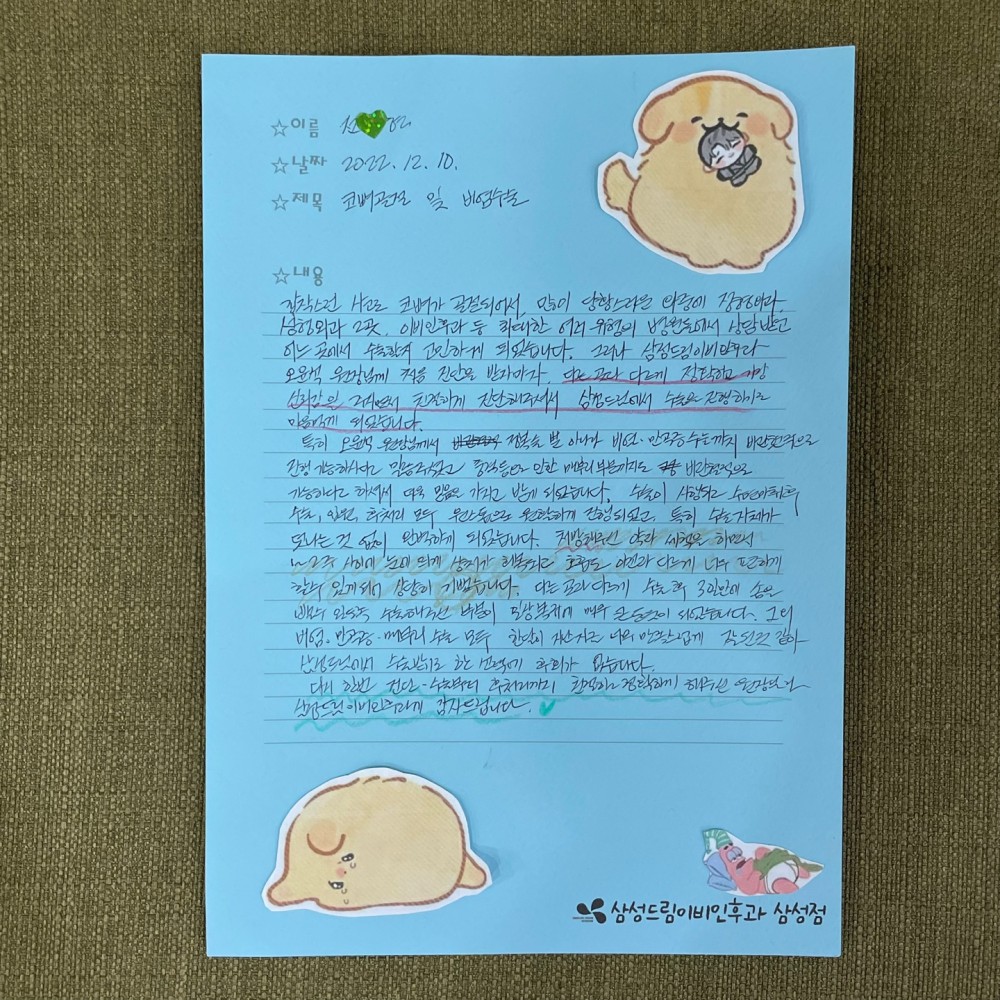 ☆이름
☆날짜 2022. 12. 10.
☆제목 코뼈골절 및 비염수술
☆내용
갑작스런 사고로 코뼈가 골절되어서, 많이 당황스러운 와중에 정형외과
성형외과 2곳, 이비인후과 등 최대한 여러 병원들에서 상담받고
어느 곳에서 수술할지 고민하게 되었습니다. 그러나 삼성드림이비인후과
오윤석 원장님께 처음 진단을 받자마자, 다른 곳과 다르게 정확하고 가장
신뢰감있 친절하게 진단해주셔서 삼성드림에서 수술을 진행하기로
마음먹게 되었습니다.
특히 오윤석 원장님께서 골절술 뿐 아니라 비염·만곡증 수술까지 비관혈적으로
진행 가능하시다고 말씀주셨고 통증등으로 인한 매부리 부분까지도 비관혈적으로
가능하다고 하셔서 더욱 믿음을 가지고 받게 되었습니다. 수술이 시작되고 수면마취후
수술, 입원, 후처리 모두 원활하게 진행되었고, 특히 수술 자체가
모나는 것 없이 완벽하게 되었습니다. 처방해주신 약과 세척을 하면서
1~2주 사이에 눈에 띄게 상처가 회복되고 호흡도 이전과 다르게 너무 편하게
할수 있게되어 상당히 기뻤습니다. 다른 곳과 다르게 수술 후 3일만에 솜을
빼고 수술해주신 부분이 일상복귀에 매우 큰 도움이 되었습니다. 그외
비염·만곡증·매부리 수술 모두 만족스럽게 잘 된것 같아
삼성드림에서 수술받기로 한 선택에 후회가 없습니다.
다시 한번 진단·수술부터 후처리까지 친절하고 정확하게 해주신 원장님과
삼성드림이비인후과에 감사드립니다.
삼성드림이비인후과 삼성점